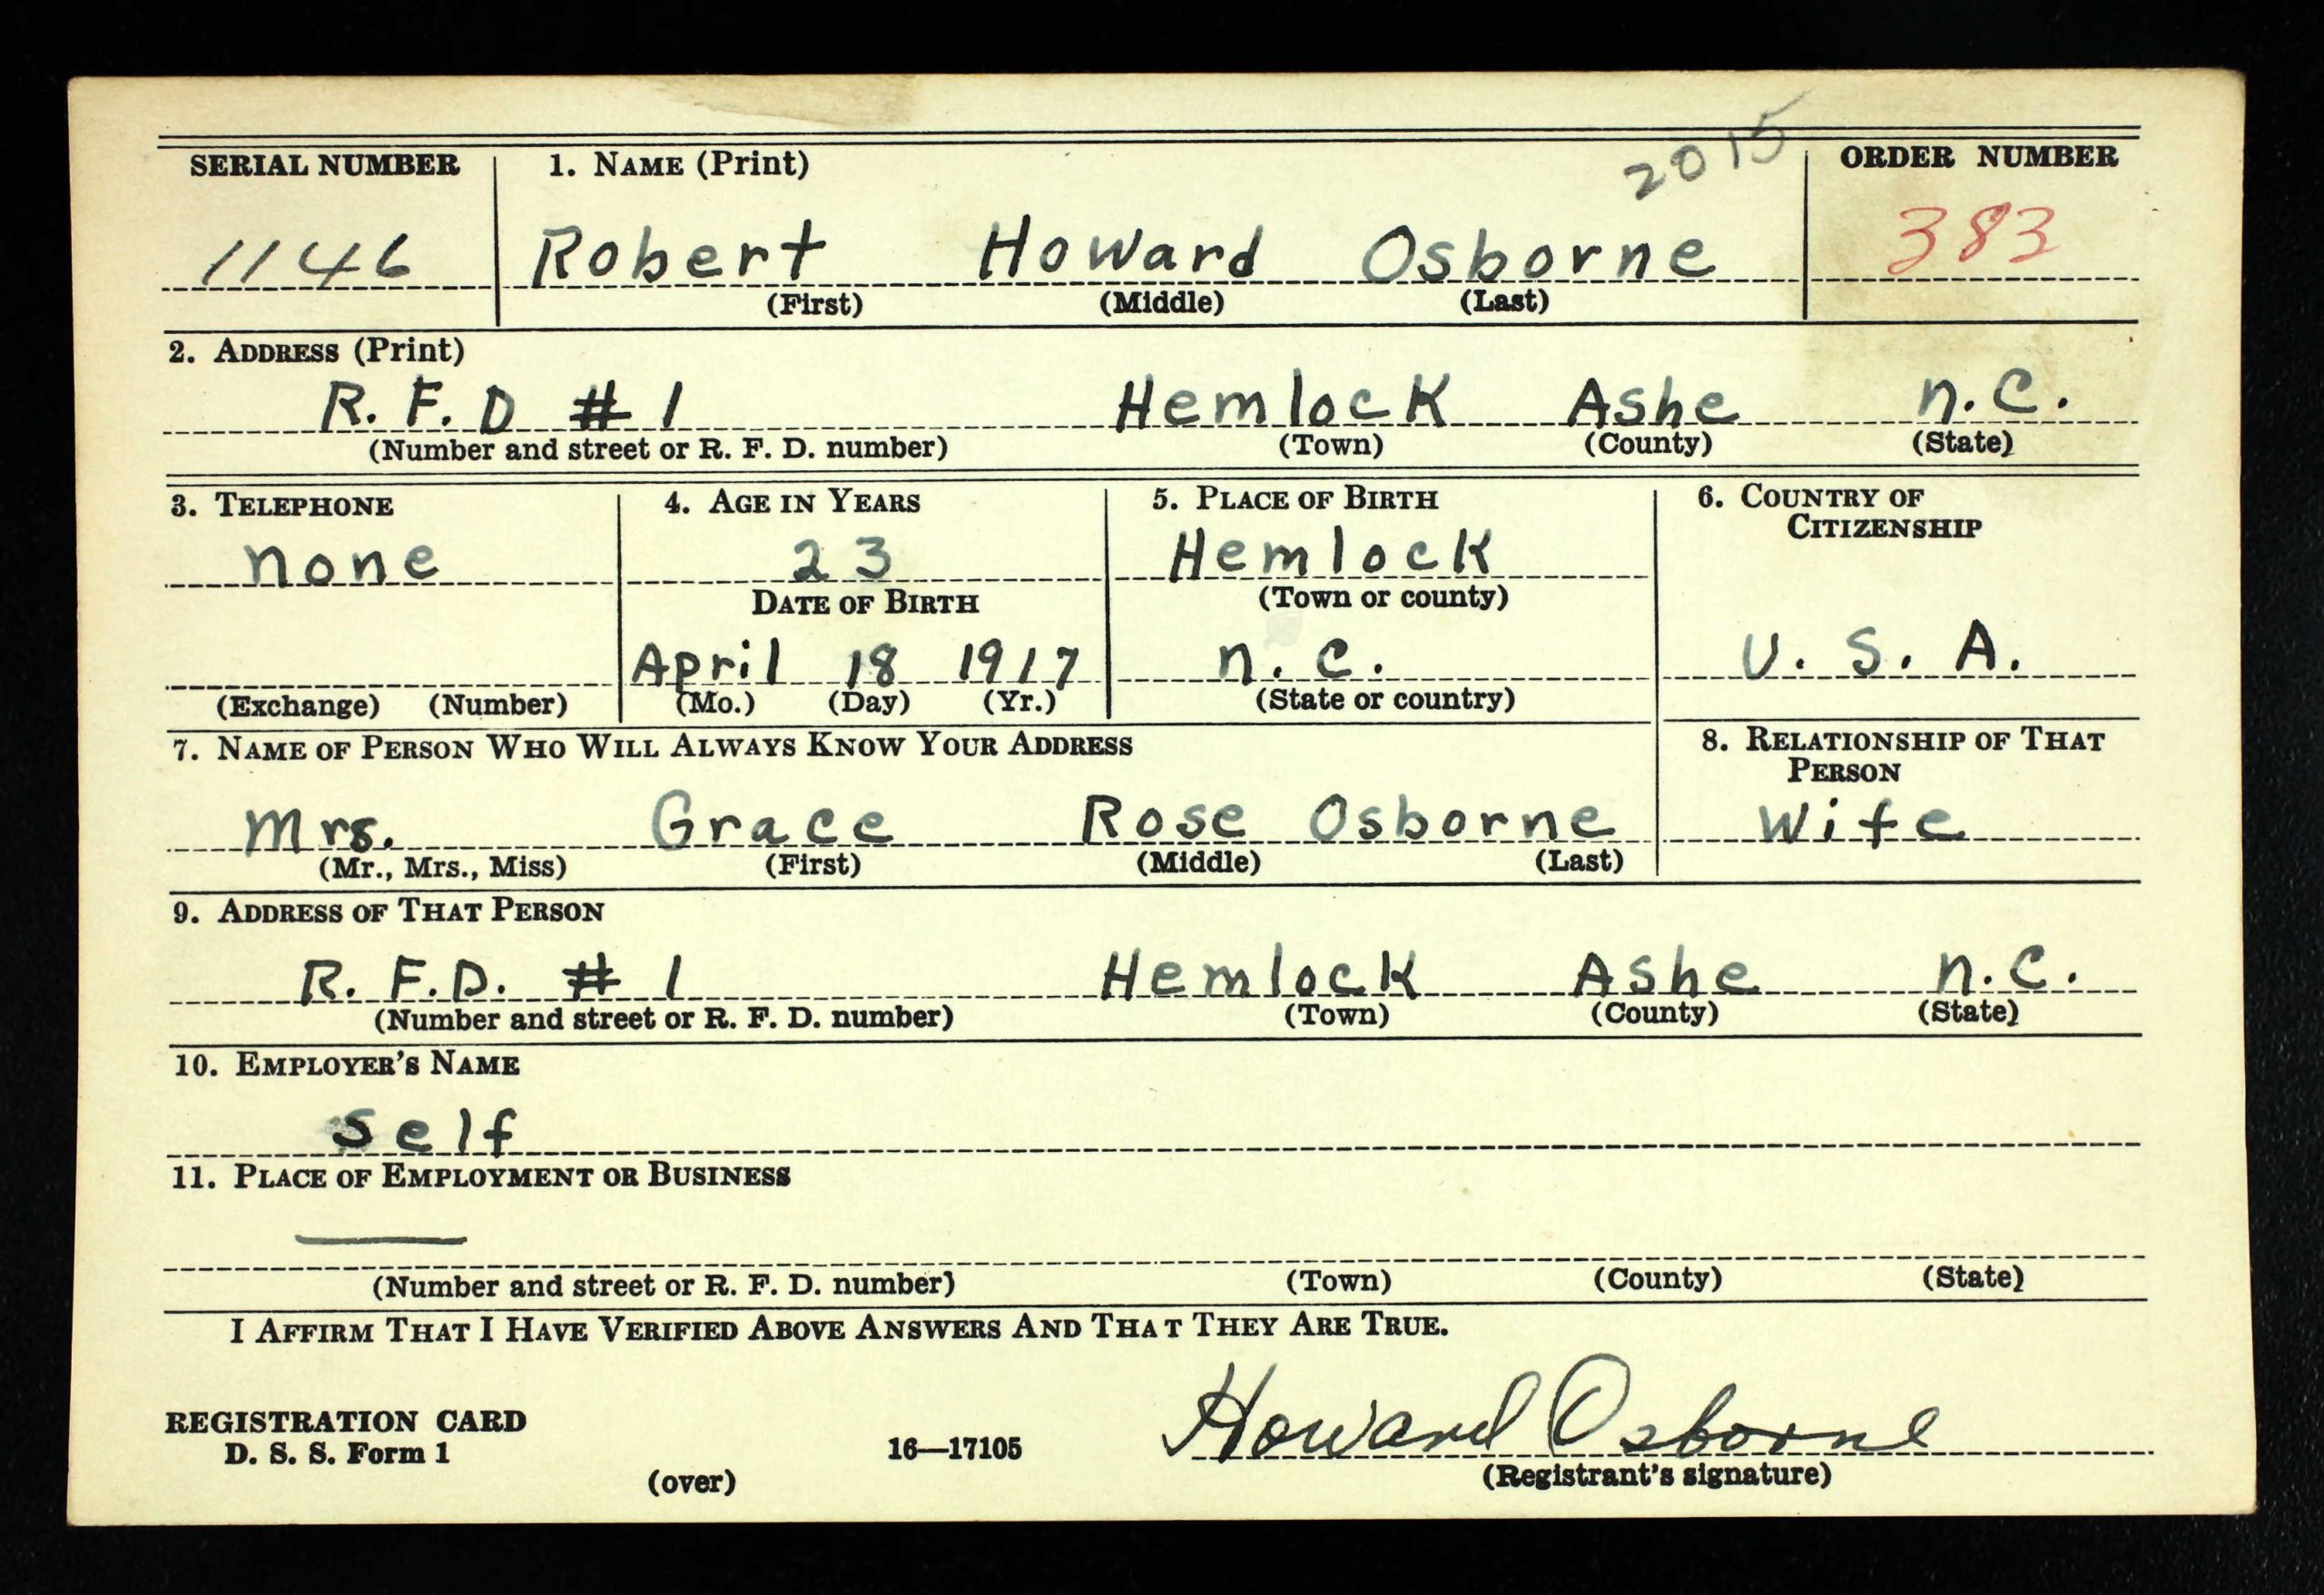 2015
SERIAL NUMBER 1. NAME (Print) ORDER NUMBER
1146 Robert Howard Osborne 383
(First) (Middle) (Last)
2. ADDRESS (Print)
R. F. D # 1 Hemlock Ashe N.C.
(Number and street or R. F. D. number) (Town) (County) (State)
3. TELEPHONE 4. AGE IN YEARS 5. PLACE OF BIRTH 6. COUNTRY OF
CITIZENSHIP
none 23 Hemlock
DATE OF BIRTH (Town or county)
April 18 1917 N. C. U. S. A.
(Exchange) (Number) (Mo.) (Day) (Yr.) (State or country)
7. NAME OF PERSON WHO WILL ALWAYS KNOW YOUR ADDRESS 8. RELATIONSHIP OF THAT
PERSON
Mrs. Grace Rose Osborne Wife
(Mr., Mrs., Miss) (First) (Middle) (Last)
9. ADDRESS OF THAT PERSON
R. F.D. # 1 Hemlock Ashe N.C.
(Number and street or R. F. D. number) (Town) (County) (State)
10. EMPLOYER'S NAME
Self
11. PLACE OF EMPLOYMENT OR BUSINESS
(Number and street or R. F. D. number) (Town) (County) (State)
I AFFIRM THAT I HAVE VERIFIED ABOVE ANSWERS AND THAT THEY ARE TRUE.
REGISTRATION CARD Howard Osborne
D. S. S. Form 1 16—17105
(over) (Registrant's signature)